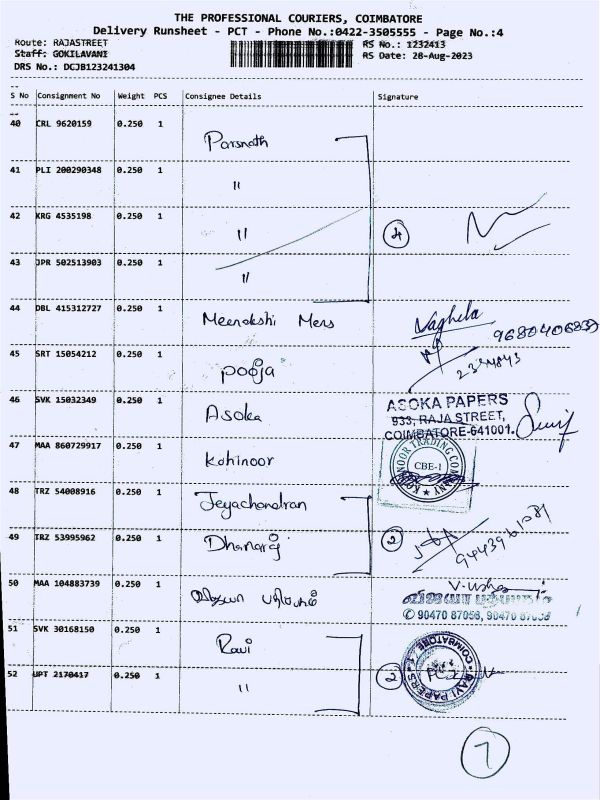 THE PROFESSIONAL COURIERS, COIMBATORE
Delivery Runsheet - PCT - Phone No.:0422-3505555 - Page No.:4
Route: RAJASTREET
RS No.: 1232413
Staff: GOKILAVANI
RS Date: 28-Aug-2023
DRS No.: DCJB123241304
S No Consignment No Weight PCS Consignee Details Signature
40 CRL 9620159 0.250 1 Parsnath
41 PLI 200290348 0.250 1 "
42 KRG 4535198 0.250 1 " 4
43 JPR 502513903 0.250 1 "
44 DBL 415312727 0.250 1 Meenakshi Mens Vaghela
9680406839
45 SRT 15054212 0.250 1 pooja
46 SVK 15032349 0.250 1 Asoka ASOKA PAPERS
933, RAJA STREET,
COIMBATORE-641001.
47 MAA 860729917 0.250 1 Kohinoor KOHINOOR TRADING COMPANY
CBE-1
48 TRZ 54008916 0.250 1 Jeyachandran
49 TRZ 53995962 0.250 1 Dhanaraj 2
50 MAA 104883739 0.250 1 V-usha
விஜயா
✆ 90470 87056, 90470
51 SVK 30168150 0.250 1 Ravi
52 UPT 2170417 0.250 1 " 2 RAVI PAPERS COIMBATORE - 1
7